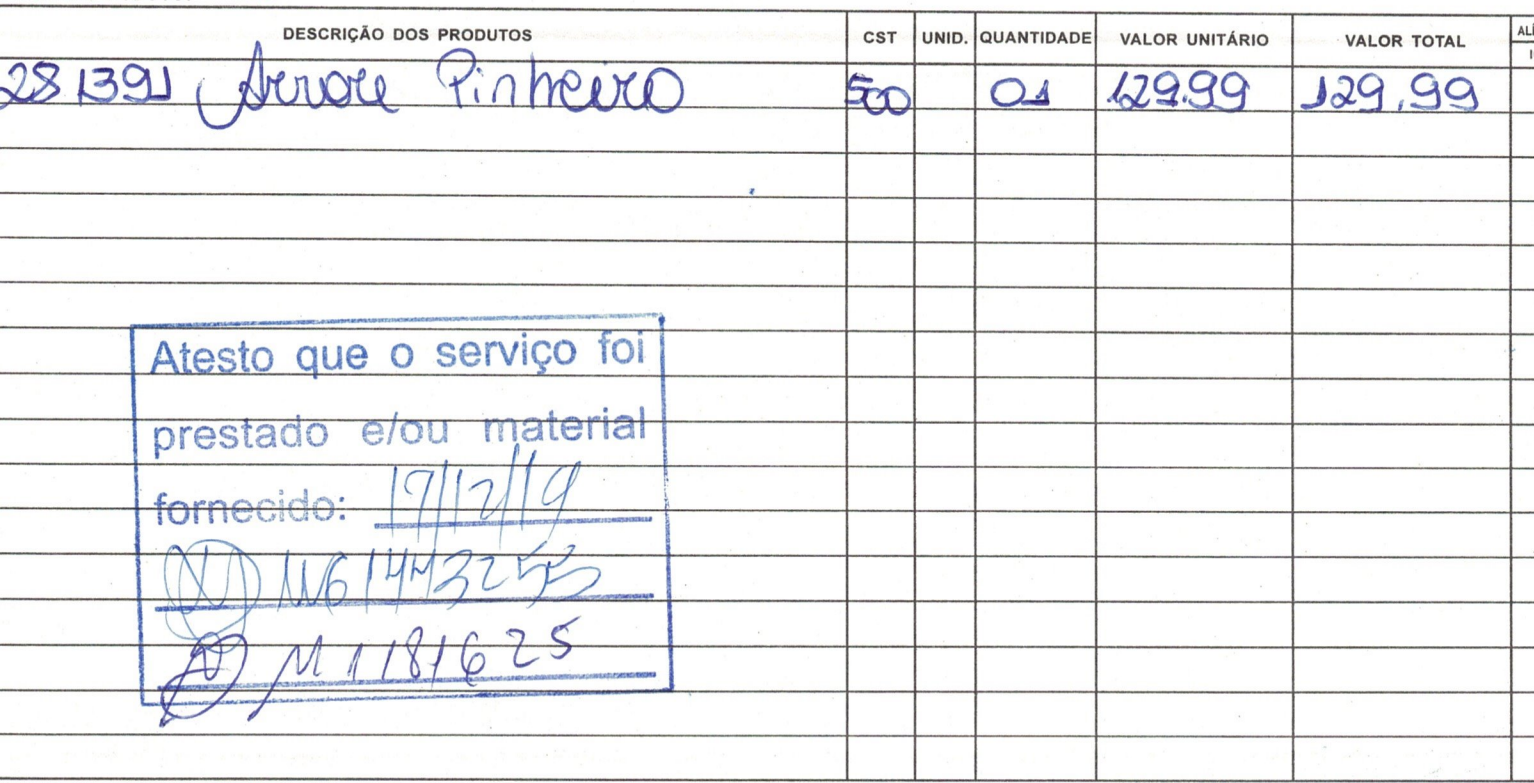 DESCRIÇÃO DOS PRODUTOS CST UNID. QUANTIDADE VALOR UNITÁRIO VALOR TOTAL
281391 Arvore Pinheiro 500 01 129.99 129.99
Atesto que o serviço foi
prestado e/ou material
fornecido: 17/12/19
M61443255
M1181625